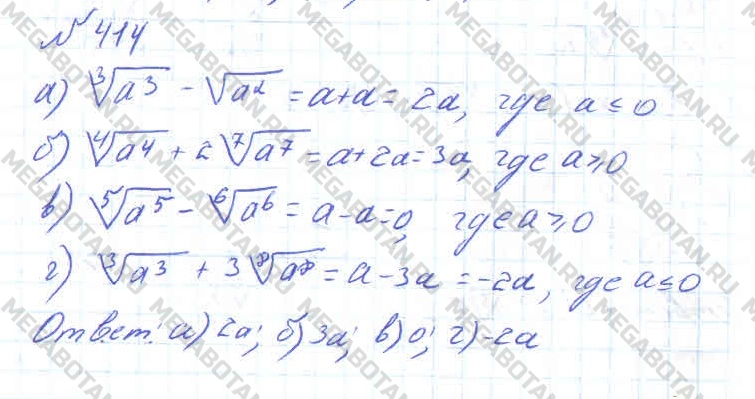 № 414
а) ∛a³ - √a² = a+a = 2a, где a ≤ 0
б) ∜a⁴ + 2 ⁷√a⁷ = a+2a = 3a, где a ≥ 0
в) ⁵√a⁵ - ⁶√a⁶ = a-a=0, где a ≥ 0
г) ∛a³ + 3 ⁸√a⁸ = a-3a = -2a, где a ≤ 0
Ответ: а) 2a; б) 3a; в) 0; г) -2a
MEGABOTAN.RU